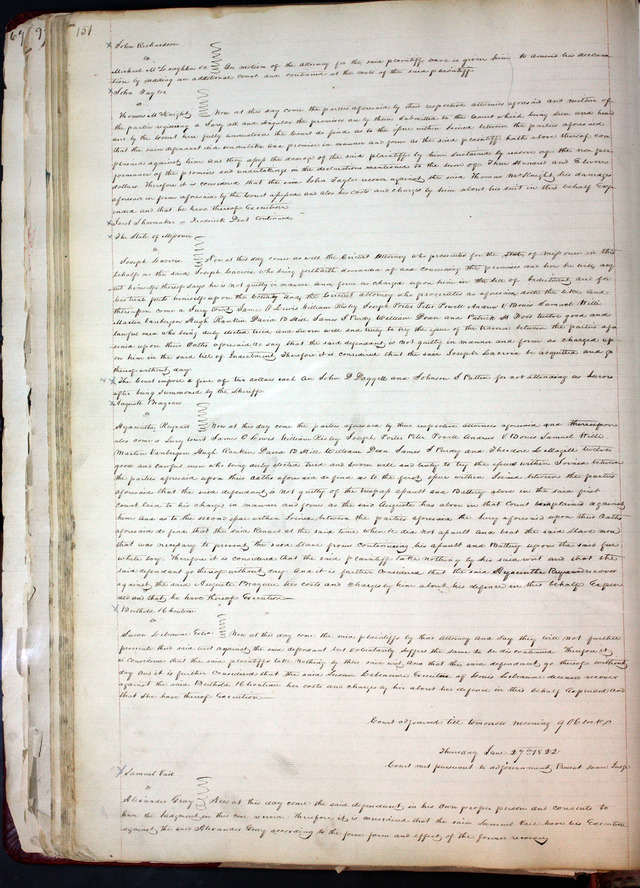 151
John Richardson
vs
Michael McLaughlin &c On motion of the Attorney for the said plaintiffs leave is given him to amend his declara
tion by adding an additional count and continued at the costs of the said plaintiff
John Taylor
vs
Thomas McKnight Now at this day come the parties aforesaid by their respective attornies aforesaid and neither of
the parties requiring a Jury all and singular the premises are by them submitted to the Court which being seen and heard
and by the Court here fully understood the Court do find as to the issue within Joined between the parties aforesaid
that the said defendant did undertake and promise in manner and form as the said plaintiff hath above thereof com
plained against him and they assess the damage of the said plaintiff by him sustained by reason of the non per
formance of the promises and undertakings in the declaration mentioned to the sum of Three Hundred and Eleven
dollars Therefore it is considered that the said John Taylor recover against the said Thomas McKnight his damages
aforesaid in form aforesaid by the Court assessed and also his costs and charges by him about his suit in this behalf Exp
ended and that he have thereof Execution
Jacob Shoemaker vs Frederick Dent Continued
The State of Missouri
vs
Joseph Lacroix Now at this day comes as well the Circuit Attorney who prosecutes for the State of Missouri in this
behalf as the said Joseph Lacroix who being forthwith demanded of and concerning the premises and how he will ac
quit himself thereof says he is not guilty in manner and form as charged upon him in the bill of Indictment and for
his trial puts himself upon the County and the Circuit attorney who prosecutes as aforesaid doth the like and
thereupon came a Jury to wit James O Lewis William Risley Joseph Porter Peter Powell Andrew V Bouis Samuel Willi
Martin Vanhugen Hugh Rankin David B Hill James S Purdy William Dean and Patrick H Ford twelve good and
lawful men who being duly elected tried and sworn well and truly to try the issue of the traverse between the parties afo
resaid upon their Oaths aforesaid do say that the said defendant is not guilty in manner and form as charged up
on him in the said bill of Indictment Therefore it is considered that the said Joseph Lacroix be acquitted and go
thereof without day
The Court impose a fine of two dollars each on John D Daggett and Johnson S Patten for not attending as Jurors
after being summoned by the Sheriff
Auguste
vs
Hyacinthe Renard Now at this day come the parties aforesaid by their respective attornies aforesaid and thereupon
also come a Jury to wit James O Lewis William Risley Joseph Porter Peter Powell Andrew V Bouis Samuel Willi
Martin Vanhugen Hugh Rankin David B Hill William Dean James S Purdy and Theodore L McGill twelve
good and lawful men who being duly elected tried and sworn well and truly to try the issues within Joined between
the parties aforesaid upon their Oaths aforesaid do find as to the first issue within Joined between the parties
aforesaid that the said defendant is not guilty of the trespass assault and Battery above in the said first
Count laid to his charge in manner and form as the said Auguste has above in that Count complained against
him and as to the second issue within Joined between the parties aforesaid the Jury aforesaid upon their Oaths
aforesaid do find that the said Renard at the said time when &c did not assault and beat the said Slave more
than was necessary to prevent the said Slave from Continuing his assault and Battery upon the said free
white boy Therefore it is considered that the said plaintiff take nothing by his said writ and that the
said defendant go thereof without day And it is further considered that the said Hyacinthe Renard recover
against the said Auguste his costs and charges by him about his defence in this behalf Expen
ded and that he have thereof Execution
Berthold & Chouteau
vs
Susan LeBeaume Extrx Now at this day come the said plaintiffs by their Attorney and say they will not further
prosecute their said writ against the said defendant but voluntarily suffers the same to be discontinued Therefore it
is Considered that the said plaintiffs take Nothing by their said writ and that the said defendant go thereof without
day And it is further Considered that the said Susan LeBeaume Executrix of Louis LeBeaume deceased recover
against the said Berthold & Chouteau her costs and charges by her about her defence in this behalf Expended and
that she have thereof Execution
Court adjourned till tomorrow morning 9 O Clock
Thursday June 27th 1822
Court met pursuant to adjournment Present same Judge
Samuel Vail
vs
Alexander Gray Now at this day came the said defendant in his own proper person and consents to
have the Judgment in this case revived Therefore it is considered that the said Samuel Vail have his Execution
against the said Alexander Gray according to the force form and effect of the former recovery